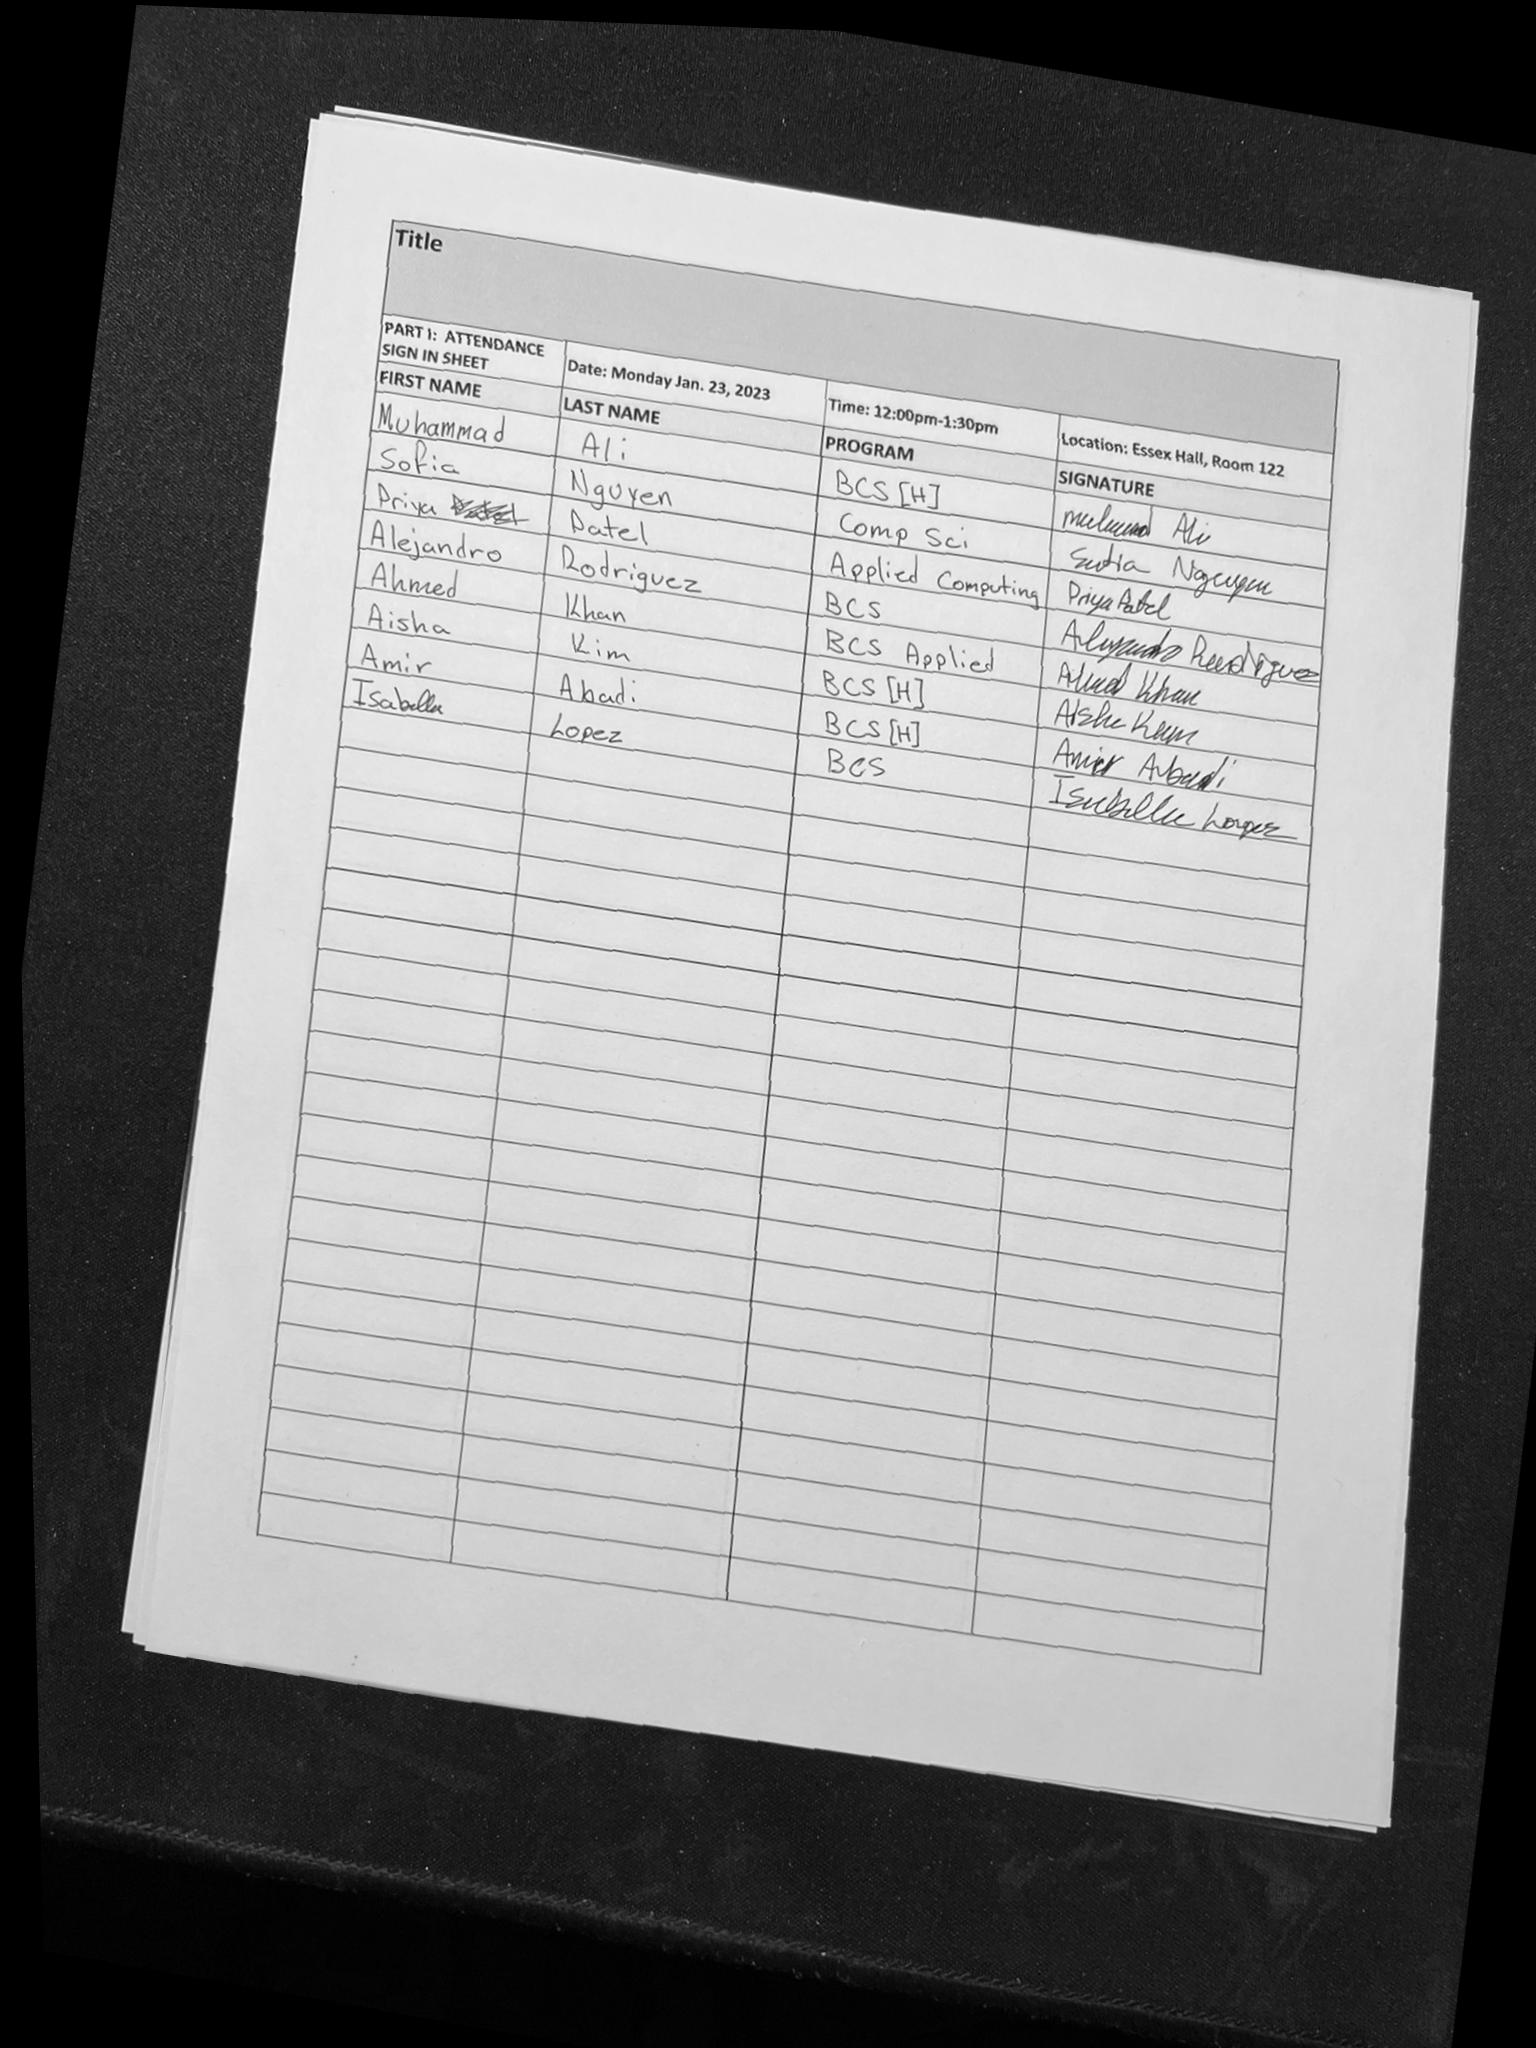 Title
PART I: ATTENDANCE SIGN IN SHEET Date: Monday Jan. 23, 2023 Time: 12:00pm-1:30pm Location: Essex Hall, Room 122
FIRST NAME LAST NAME PROGRAM SIGNATURE
Muhammad Ali BCS [H] Ali
Sofia Nguyen Comp Sci Sofia Nguyen
Priya Patel Applied Computing Priya Patel
Alejandro Rodriguez BCS Alejandro Rodriguez
Ahmed Khan BCS Applied Ahmed Khan
Aisha Kim BCS [H] Aisha Kim
Amir Abadi BCS [H] Amir Abadi
Isabella Lopez BCS Isabella Lopez